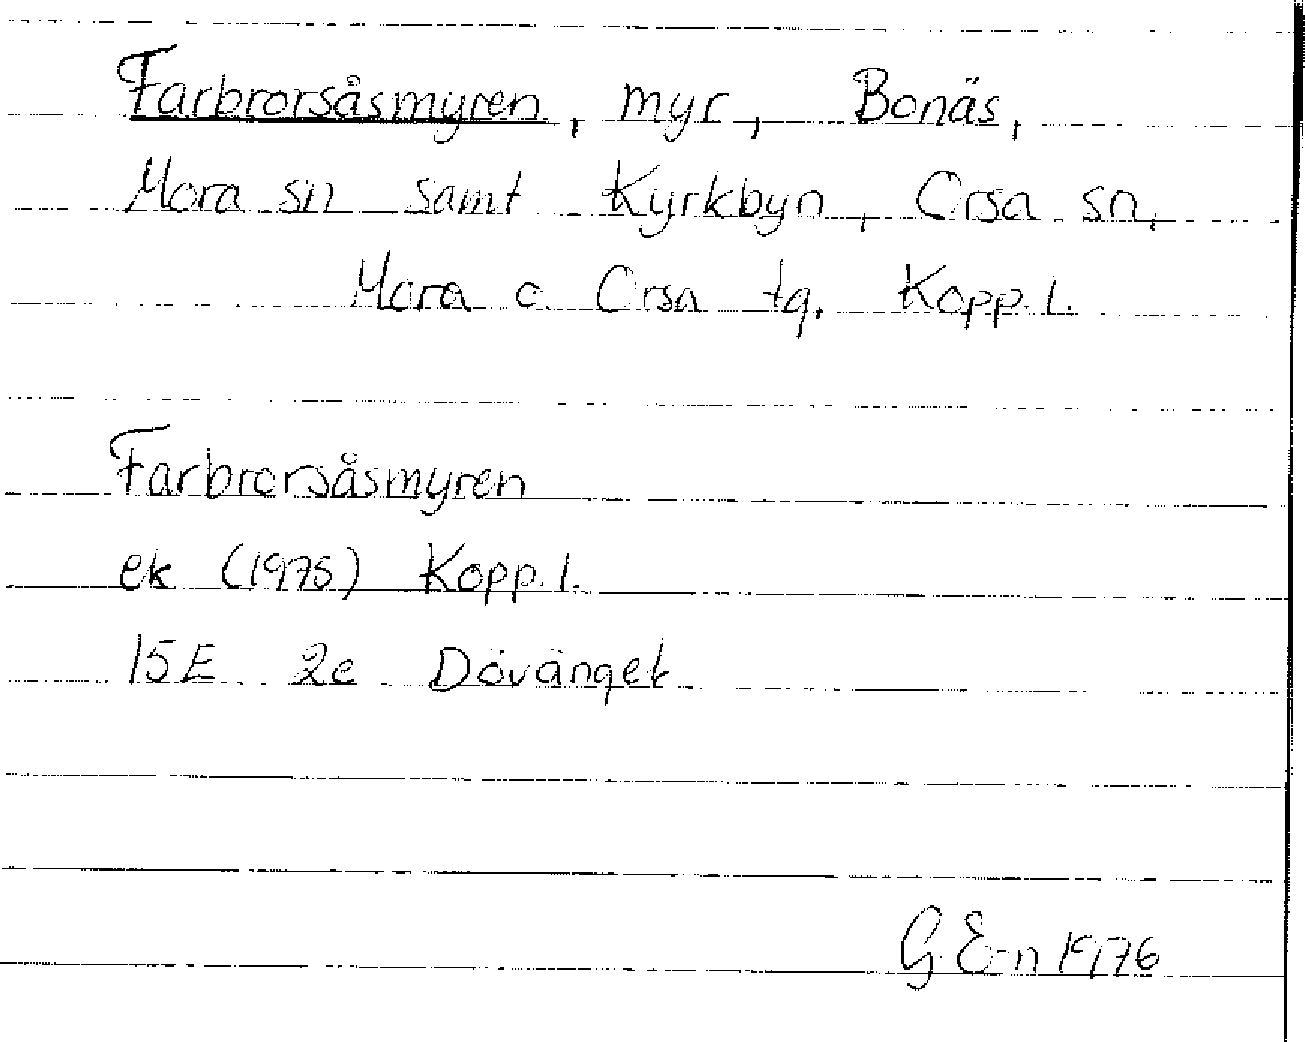 Farbrorsåsmyren, myr, Bonäs,
Mora sn samt Kyrkbyn, Orsa sn,
Mora o Orsa tg. Kopp. l.
Farbrorsåsmyren
ek (1975) Kopp. l.
15E 2e Dövänget
G. E-n 1976